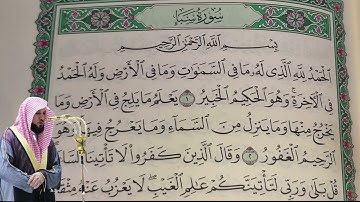 سُورَةُ سَبَإٍ
بِسْمِ اللَّهِ الرَّحْمَٰنِ الرَّحِيمِ
الْحَمْدُ لِلَّهِ الَّذِي لَهُ مَا فِي السَّمَاوَاتِ وَمَا فِي الْأَرْضِ وَلَهُ الْحَمْدُ
فِي الْآخِرَةِ وَهُوَ الْحَكِيمُ الْخَبِيرُ ١ يَعْلَمُ مَا يَلِجُ فِي الْأَرْضِ وَمَا
يَخْرُجُ مِنْهَا وَمَا يَنزِلُ مِنَ السَّمَاءِ وَمَا يَعْرُجُ فِيهَا وَهُوَ
الرَّحِيمُ الْغَفُورُ ٢ وَقَالَ الَّذِينَ كَفَرُوا لَا تَأْتِينَا السَّا
قُلْ بَلَىٰ وَرَبِّي لَتَأْتِيَنَّكُمْ عَالِمِ الْغَيْبِ لَا يَعْزُبُ عَنْهُ مِثْقَا